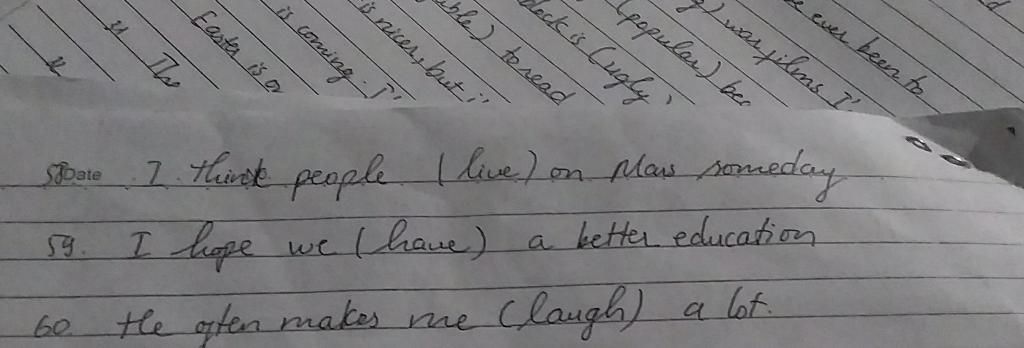 is coming. I'
Easter is a
is nicer, but i
to read
is (ugly,
(popular) bec
) was films I'
ever been to
58 Date I think people (live) on Mars someday
59. I hope we (have) a better education
60. He often makes me (laugh) a lot.